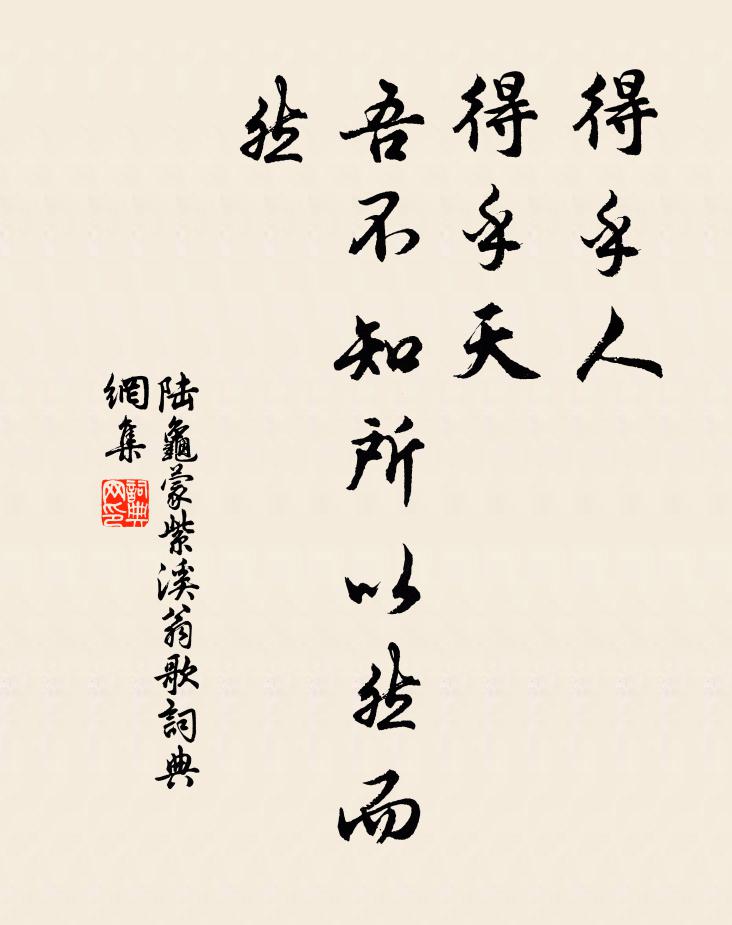 得乎人
得乎天
吾不知所以然而
然
陆龜蒙紫溪翁歌詞典
網集
詞典
网印